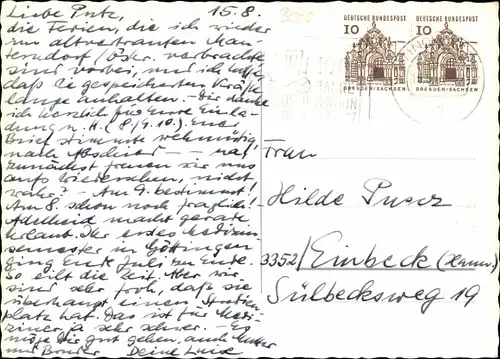 Liebe Putz, 15.8.
die Ferien, die ich wieder
im altvertrauten
verbrachte
sind vorbei, und ich hoffe,
daß die gespeicherten Kräfte
lange anhalten. – Dir danke
ich herzlich für Eure Einla-
dung n. H. (8./9.10.) Euer
Brief stimmte wehmütig
nach Abschied – – na,
zunächst freuen wir uns
aufs Wiedersehen, nicht
wahr? – Am 9. bestimmt!
Am 8. schon noch fraglich!
Adelheid macht gerade
Urlaub. Ihr erstes Medizin-
semester in Göttingen
ging Ende Juli zu Ende.
So eilt die Zeit. Aber wir
sind sehr froh, daß sie
überhaupt einen Studien-
platz hat. Das ist für Medi-
ziner ja sehr schwer. – Es
möge Dir gut gehen, auch Mutter
und Bruder. Deine Luise
DEUTSCHE BUNDESPOST
10
DRESDEN/SACHSEN
DEUTSCHE BUNDESPOST
10
DRESDEN/SACHSEN
Frau
Hilde
3352/Einbeck (Hann.)
Sülbecksweg 19